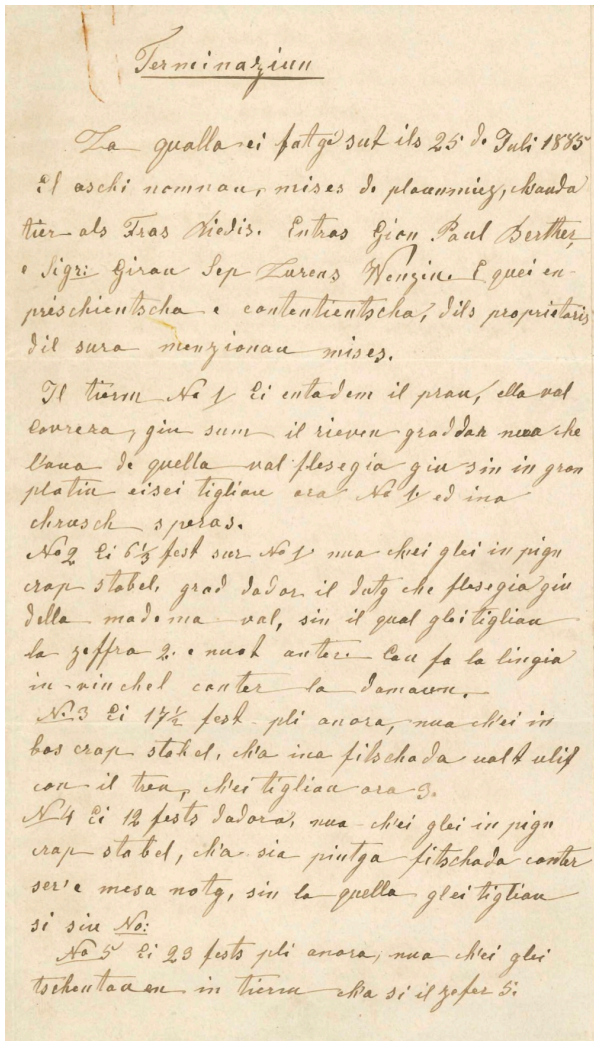 Terminaziun
La qualla ei fatgi sut ils 25 de Juli 1885
El aschi nomnau, mises de plaunmiez, chauda
tier als Fras Niedis. Entras Gion Paul Berther,
e Sigr: Girau Sep Lurens Wenzin. E quei en-
preschientscha e contentientscha, dils proprietaris
dil sura menzionau mises.
Il tierm No 1 Ei entadem il prau, ella val
Cavrera, giu sum il rieven graddar nua che
l'aua de quella val flesegia giu sin in gron
platiu eisei tigliau ora No 1 ed ina
chrusch speras.
No 2 Ei 6 1/3 fest sur No 1 nua ch'ei glei in pign
crap stabel, grad dador il dutg che flesegia giu
della madema val, sin il qual glei tigliau
la zeffra 2. e nuot anter. Cou fa la lingia
in vinchel conter la damaun.
No 3 Ei 17 1/2 fest pli anora, nua ch'ei in
bos crap stabel, ch'a ina fitschada ualt ulif
con il treu, ch'ei tigliau ora 3.
N 4 Ei 12 fests dadora, nua ch'ei glei in pign
crap stabel, ch'a sia piutga fitschada conter
ser'e mesa notg, sin la quella glei tigliau
si siu No:
No 5 Ei 23 fests pli anora, nua ch'ei glei
tschentau en in tierm ch'a si il zefer 5.